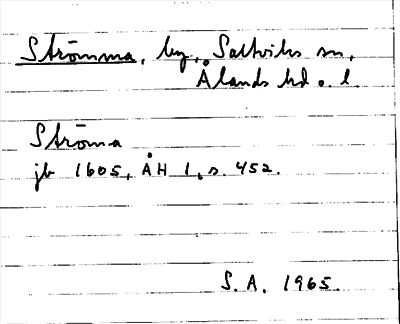 Strömma, by, Saltviks sn,
Ålands hd o. l.
Ströma
jb 1605, ÅH 1, s. 452.
S. A. 1965.